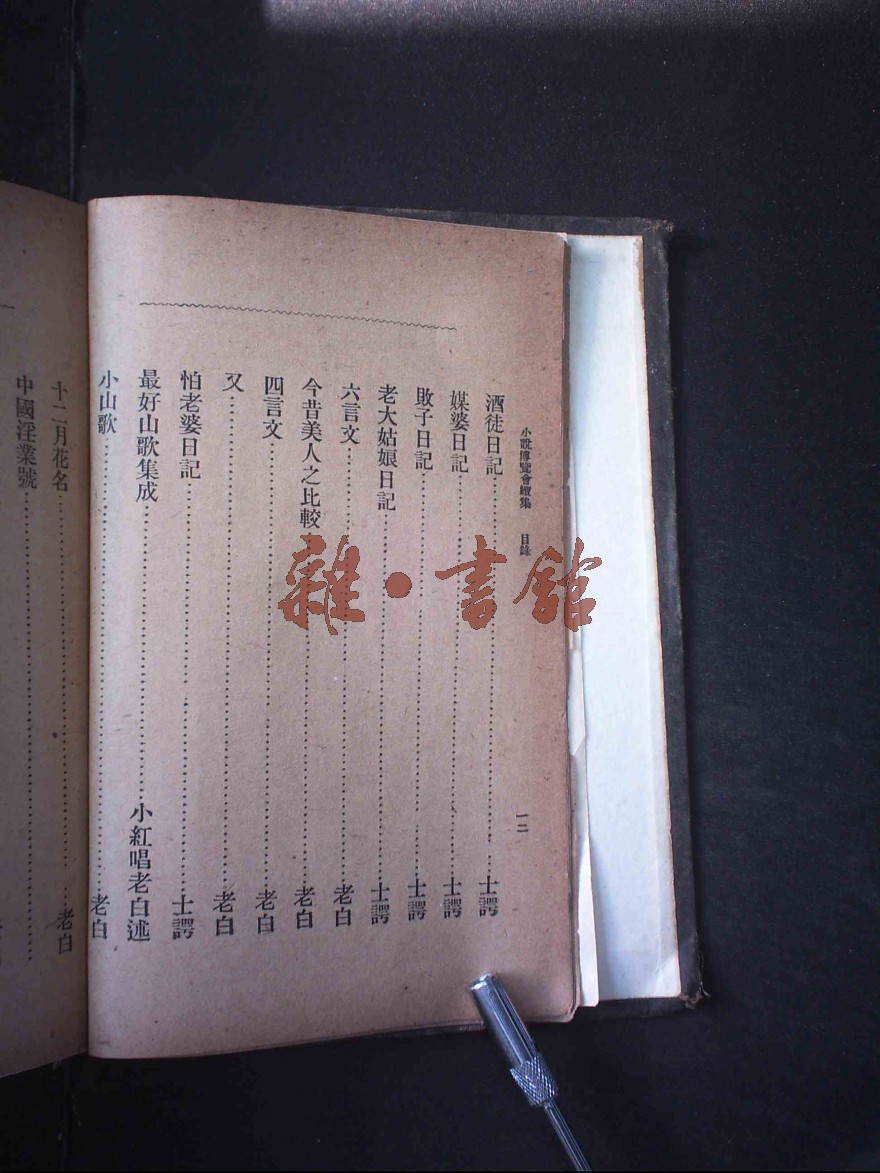 小說博覽會續集 目錄 一二
酒徒日記 士諤
媒婆日記 士諤
敗子日記 士諤
老大姑娘日記 士諤
六言文 老白
今昔美人之比較 老白
四言文 老白
又 老白
怕老婆日記 士諤
最好山歌集成 小紅唱老白述
小山歌 老白
十二月花名 老白
中國淫業號
雜·書館